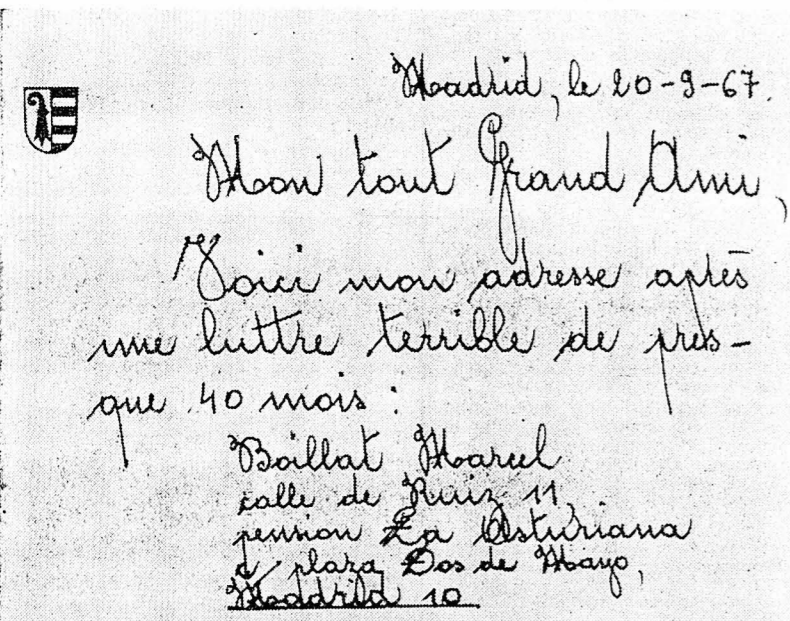 Madrid, le 20-9-67.
Mon tout Grand Ami,
Voici mon adresse après
une luttre terrible de pres-
que 40 mois :
Boillat Marcel
calle de Ruiz 11,
pension La Asturiana
c/ plaza Dos de Mayo,
Maddrid 10